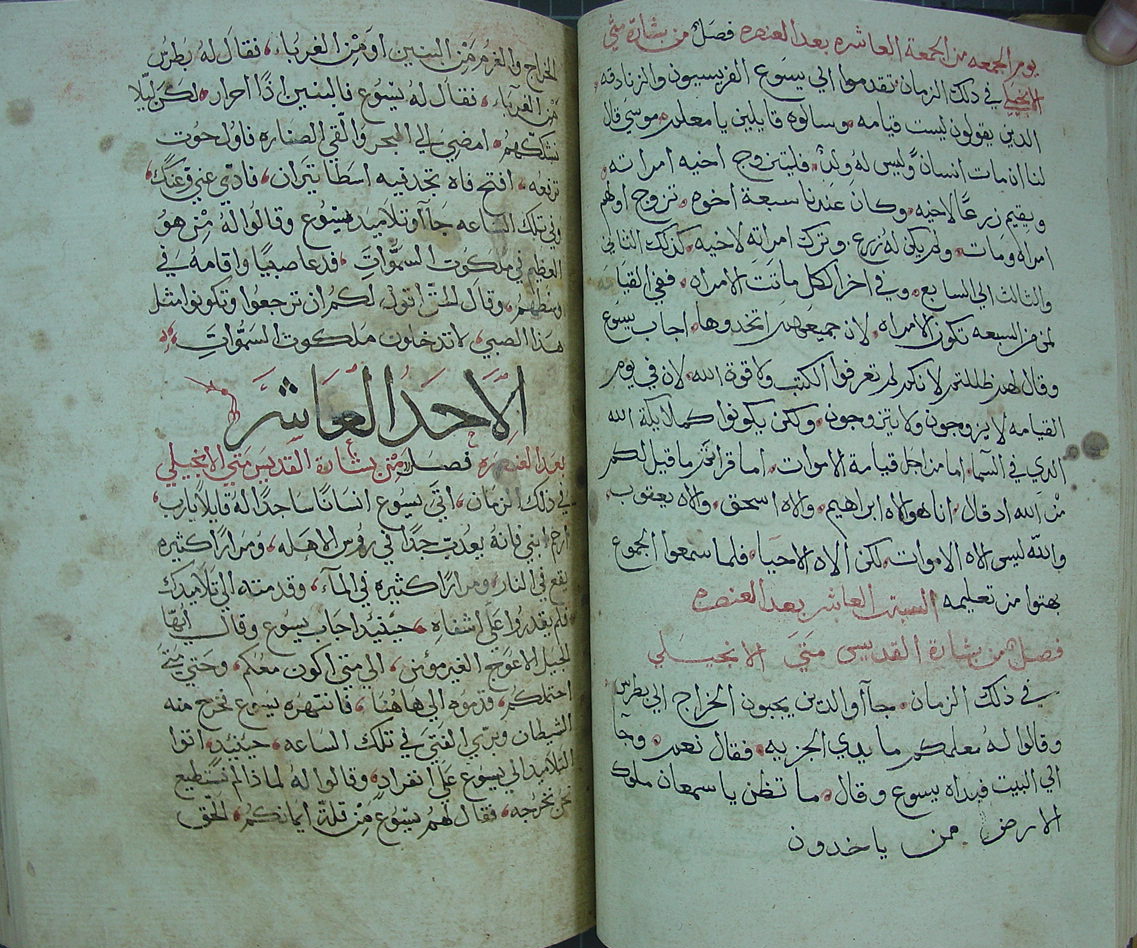 يوم الجمعه من الجمعة العاشره بعد العنصره فصل من بشارة متي
الانجيلي في ذلك الزمان تقدموا الي يسوع الفريسيون والزنادقه
الدين يقولون ليست قيامه وسالوه قايلين يا معلم موسي قال
لنا ان مات انسان وليس له ولد فليتزوج اخيه امراته
ويقيم زرعا لاخيه وكان عندنا سبعة اخوه تزوج اولهم
امراه ومات ولم يكن له زرع وترك امراته لاخيه كذلك الثاني
والثالث الي السابع وفي اخر الكل ماتت الامراه ففي القيامه
لمن من السبعه تكون الامراه لان جميعهم اتخدوها اجاب يسوع
وقال لهم ظللتم لانكم لم تعرفوا الكتب ولا قوة الله لان في يوم
القيامه لا يزوجون ولا يتزوجون ولكن يكونوا كملايكة الله
الدي في السما اما من اجل قيامة الاموات اما قراتم ما قيل لكم
من الله اد قال انا هو الاه ابراهيم والاه اسحق والاه يعقوب
والله ليس الاه الاموات لكن الاه الاحيا فلما سمعوا الجموع
بهتوا من تعليمه السبت العاشر بعد العنصره
فصل من بشارة القديس متي الانجيلي
في ذلك الزمان جاأوا الدين يجبون الخراج الي بطرس
وقالوا له معلمكم ما يدي الجزيه فقال نعم وجا
الي البيت فبداه يسوع وقال ما تظن يا سمعان ملوك
الارض ممن ياخدون
الخراج والغرم من البنين او من الغربا فقال له بطرس
من الغربآ فقال له يسوع فالبنين اذا احرار لكن ليلا
نشككهم امضي الي البحر والقي الصناره فاول حوت
ترفعه افتح فاه تجد فيه اسطاتيران فادي عني وعنك
وفي تلك الساعه جاآو تلاميد يسوع وقالوا له من هو
العظيم في ملكوت السموات فدعا صبيا واقامه في
وسطهم وقال الحق اقول لكم ان ترجعوا وتكونوا مثل
هذا الصبي لا تدخلون ملكوت السموات
الاحد العاشر
بعد العنصره فصل من بشارة القديس متي الانجيلي
في ذلك الزمان اتي يسوع انسانا ساجدا له قايلا يارب
ارحم ابني فانه يعدب جدا في روس الاهله ومرارا كثيره
يقع في النار ومرارا كثيره في المآ وقدمته الي تلاميدك
فلم يقدروا علي اشفاه حينيد اجاب يسوع وقال ايها
الجيل الاعوج الغير مؤمن الي متي اكون معكم وحتي متي
احتملكم قدموه الي هاهنا فانتهره يسوع فخرج منه
الشيطان وبري الفتي في تلك الساعه حينيد اتوا
التلاميد الي يسوع علي انفراد وقالوا له لماذا لم نستطيع
نحن نخرجه فقال لهم يسوع من قلة ايمانكم الحق